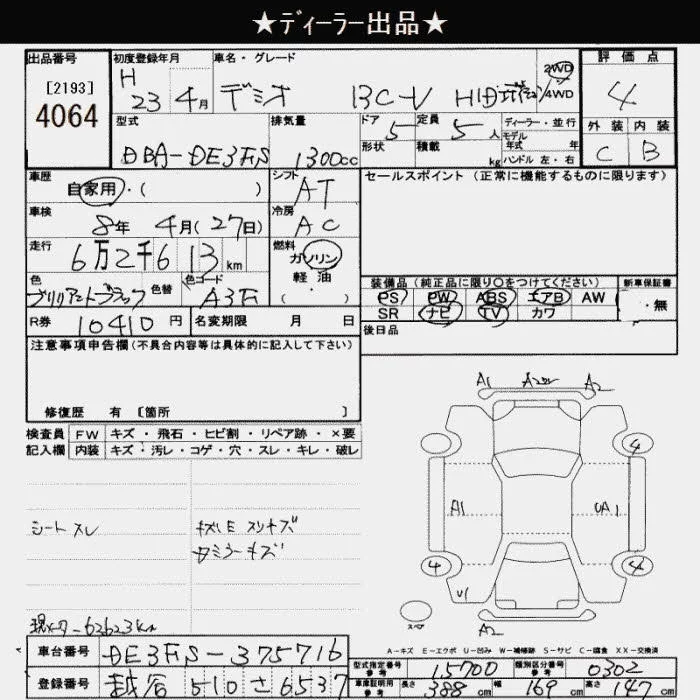 ★ディーラー出品★
出品番号
[2193]
4064
初度登録年月
H 23年 4月
車名・グレード
デミオ 13C-V HID
2WD
4WD
評価点
4
外装 内装
C B
型式
DBA-DE3FS
排気量
1300cc
ドア 5
形状
定員 5人
積載 kg
ディーラー・並行
モデル
年式 年
ハンドル 左・右
車歴
自家用・( )
シフト
AT
セールスポイント (正常に機能するものに限ります)
車検
8年 4月(27日)
冷房
AC
走行
6万2千613km
燃料
ガソリン
軽油
( )
色
ブリリアントブラック
色替
色コード
A3F
装備品 (純正品に限り○をつけてください)
新車保証書
PS PW ABS エアB AW
・無
SR ナビ TV カワ
R券 10410円
名変期限 月 日
後日品
注意事項申告欄(不具合内容等は具体的に記入して下さい)
修復歴 有 [箇所 ]
検査員 FW キズ・飛石・ヒビ割・リペア跡・×要
記入欄 内装 キズ・汚レ・コゲ・穴・スレ・キレ・破レ
A1 A2 A2
4
A1 UA1
4 4
U1
スペア
A2
シート スレ
スリキズ
ミラーキズ
現メーター62623km
A-キズ E-エクボ U-凹み W-補修跡 S-サビ C-腐食 XX-交換済
車台番号 DE3FS-375716
登録番号 越谷 510 さ 6537
型式指定番号
参考
15700
類別区分番号
参考
0302
車庫証明用
参考
長さ 388cm 幅 169cm 高さ 147cm